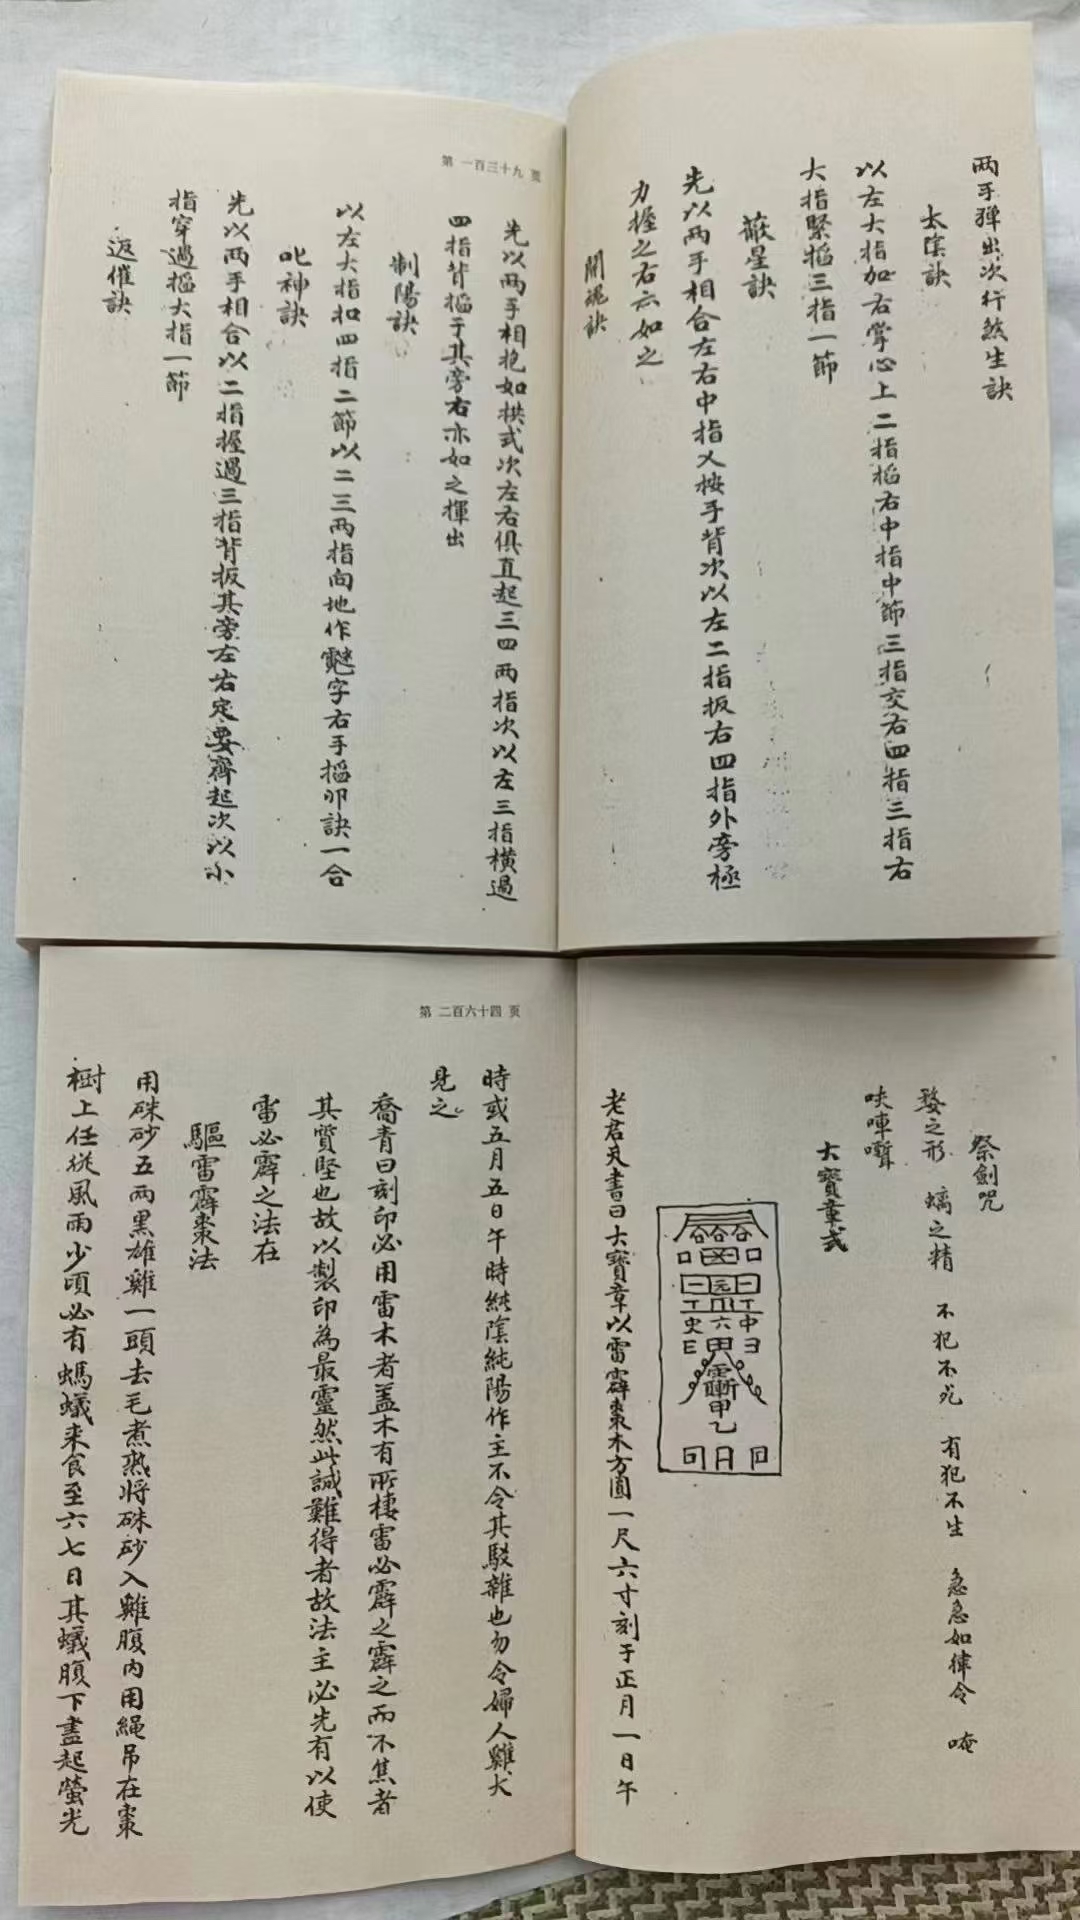 两手弹出次行煞生訣
太陰訣
以左大指加右掌心上二指掐右中指中節三指交右四指三指右
大指緊掐三指一節
藏星訣
先以两手相合左右中指乂按手背次以左二指扳右四指外旁極
力握之右亦如之
開魂訣
第 一百三十九 页
先以两手相抱如拱式次左右俱直起三四两指次以左三指横過
四指背掐于其旁右亦如之揮出
制陽訣
以左大指扣四指二節以二三两指向地作字右手掐卯訣一合
叱神訣
先以两手相合以二指握過三指背扳其旁左右定要齊起次以小
指穿過掐大指一節
返催訣
祭劍咒
婺之形 螭之精 不犯不死 有犯不生 急急如律令 唵
吷𠱥囋
大寶章式
老君天書曰大寶章以雷霹棗木方圓一尺六寸刻于正月一日午
第 二百六十四 页
時或五月五日午時純陰純陽作主不令其駁雜也勿令婦人雞犬
見之
喬青曰刻印必用雷木者盖木有所棲雷必霹之霹之而不焦者
其質堅也故以製印為最靈然此誠難得者故法主必先有以使
雷必霹之法在
驅雷霹棗法
用硃砂五两黑雄雞一頭去毛煮熟將硃砂入雞腹内用繩吊在棗
樹上任從風雨少頃必有螞蟻来食至六七日其蟻腹下盡起螢光